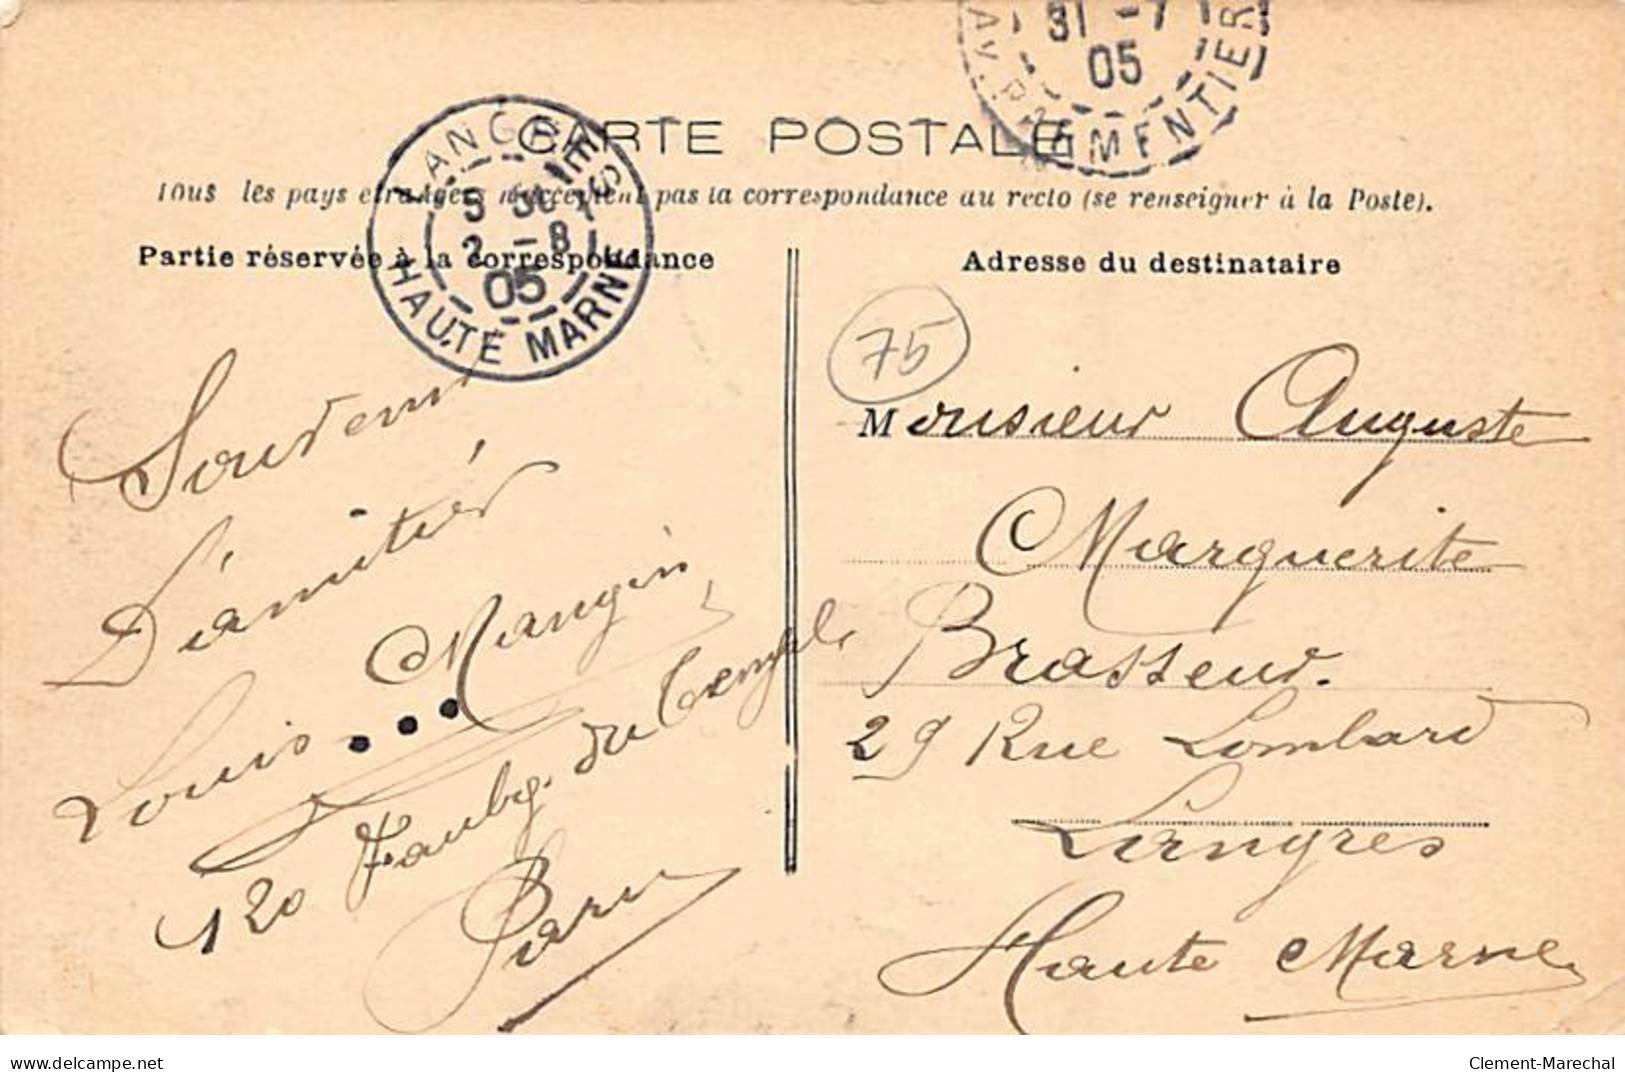 31 -7
05
AV. PARMENTIER
CARTE POSTALE
LANGRES
5 30
2 -8
05
HAUTE MARNE
Tous les pays etrangers n'acceptent pas la correspondance au recto (se renseigner à la Poste).
Partie réservée à la correspondance
Souvenir
D'amitiés
Louis Mangin
120 Faubg. du Temple
Paris
Adresse du destinataire
75
Monsieur Auguste
Marguerite
Brasseur.
29 Rue Lombard
Langres
Haute Marne
www.delcampe.net
Clement-Marechal